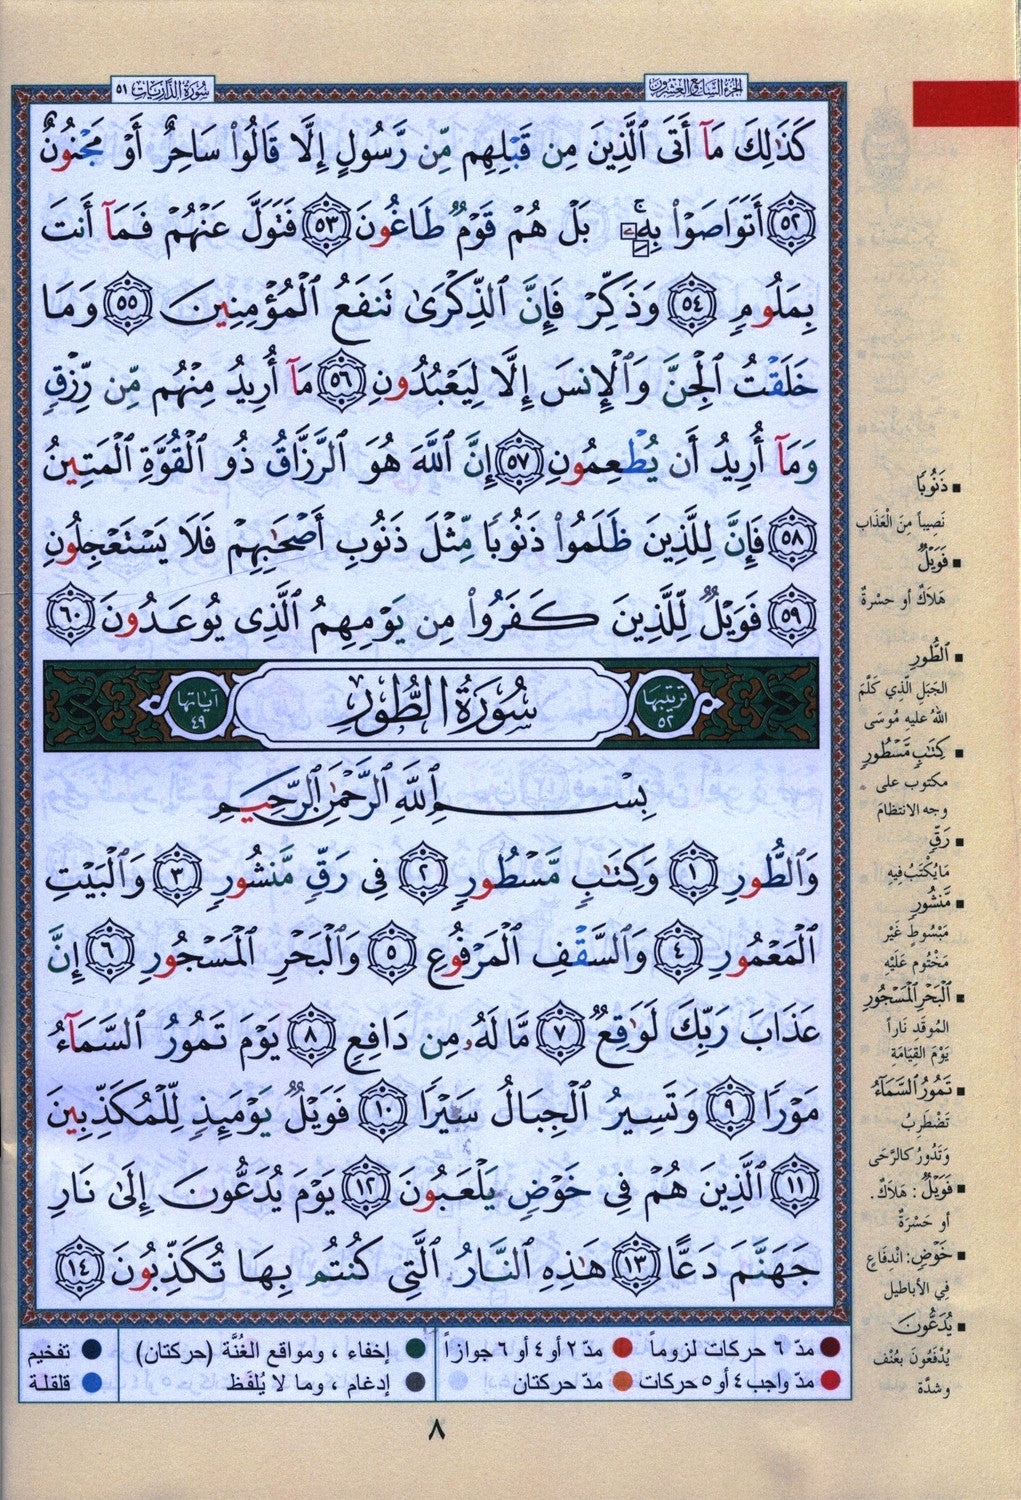 الجزء السابع والعشرون
سورة الذاريات ٥١
كَذَٰلِكَ مَآ أَتَى ٱلَّذِينَ مِن قَبۡلِهِم مِّن رَّسُولٍ إِلَّا قَالُواْ سَاحِرٌ أَوۡ مَجۡنُونٌ
٥٢ أَتَوَاصَوۡاْ بِهِۦۚ بَلۡ هُمۡ قَوۡمٞ طَاغُونَ ٥٣ فَتَوَلَّ عَنۡهُمۡ فَمَآ أَنتَ
بِمَلُومٖ ٥٤ وَذَكِّرۡ فَإِنَّ ٱلذِّكۡرَىٰ تَنفَعُ ٱلۡمُؤۡمِنِينَ ٥٥ وَمَا
خَلَقۡتُ ٱلۡجِنَّ وَٱلۡإِنسَ إِلَّا لِيَعۡبُدُونِ ٥٦ مَآ أُرِيدُ مِنۡهُم مِّن رِّزۡقٖ
وَمَآ أُرِيدُ أَن يُطۡعِمُونِ ٥٧ إِنَّ ٱللَّهَ هُوَ ٱلرَّزَّاقُ ذُو ٱلۡقُوَّةِ ٱلۡمَتِينُ
٥٨ فَإِنَّ لِلَّذِينَ ظَلَمُواْ ذَنُوبٗا مِّثۡلَ ذَنُوبِ أَصۡحَٰبِهِمۡ فَلَا يَسۡتَعۡجِلُونِ
٥٩ فَوَيۡلٞ لِّلَّذِينَ كَفَرُواْ مِن يَوۡمِهِمُ ٱلَّذِي يُوعَدُونَ ٦٠
ترتيبها ٥٢
سُورَةُ الطُّورِ
آياتها ٤٩
بِسۡمِ ٱللَّهِ ٱلرَّحۡمَٰنِ ٱلرَّحِيمِ
وَٱلطُّورِ ١ وَكِتَٰبٖ مَّسۡطُورٖ ٢ فِي رَقّٖ مَّنشُورٖ ٣ وَٱلۡبَيۡتِ
ٱلۡمَعۡمُورِ ٤ وَٱلسَّقۡفِ ٱلۡمَرۡفُوعِ ٥ وَٱلۡبَحۡرِ ٱلۡمَسۡجُورِ ٦ إِنَّ
عَذَابَ رَبِّكَ لَوَٰقِعٞ ٧ مَّا لَهُۥ مِن دَافِعٖ ٨ يَوۡمَ تَمُورُ ٱلسَّمَآءُ
مَوۡرٗا ٩ وَتَسِيرُ ٱلۡجِبَالُ سَيۡرٗا ١٠ فَوَيۡلٞ يَوۡمَئِذٖ لِّلۡمُكَذِّبِينَ
١١ ٱلَّذِينَ هُمۡ فِي خَوۡضٖ يَلۡعَبُونَ ١٢ يَوۡمَ يُدَعُّونَ إِلَىٰ نَارِ
جَهَنَّمَ دَعًّا ١٣ هَٰذِهِ ٱلنَّارُ ٱلَّتِي كُنتُم بِهَا تُكَذِّبُونَ ١٤
■ ذَنُوبًا
نَصِيباً مِنَ الْعَذَابِ
■ فَوَيۡلٞ
هَلَاكٌ أو حسْرةٌ
■ ٱلطُّورِ
الجَبَلِ الَّذِي كَلَّمَ
اللهُ عليهِ مُوسَى
■ كِتَٰبٖ مَّسۡطُورٖ
مكتوب على
وجه الانتظام
■ رَقّٖ
مَا يُكْتَبُ فِيهِ
■ مَّنشُورٖ
مَبْسُوطٍ غَيْرَ
مَخْتُوم عَلَيْهِ
■ ٱلۡبَحۡرِ ٱلۡمَسۡجُورِ
المُوقَدِ نَاراً
يَوْمَ القِيَامَةِ
■ تَمُورُ ٱلسَّمَآءُ
تَضْطَرِبُ
وَتَدُورُ كالرَّحَى
■ فَوَيۡلٞ : هَلَاكٌ .
أو حَسْرَةٌ
■ خَوۡضٖ : انْدِفَاعٍ
فِي الأباطيل
■ يُدَعُّونَ
يُدْفَعُونَ بعُنْف
وشدَّة
مدّ ٦ حركات لزوماً
مدّ ٢ أو ٤ أو ٦ جوازاً
إخفاء ، ومواقع الغُنَّة (حركتان)
تفخيم
مدّ واجب ٤ أو ٥ حركات
مدّ حركتان
إدغام ، وما لا يُلفَظ
قلقلة
٨